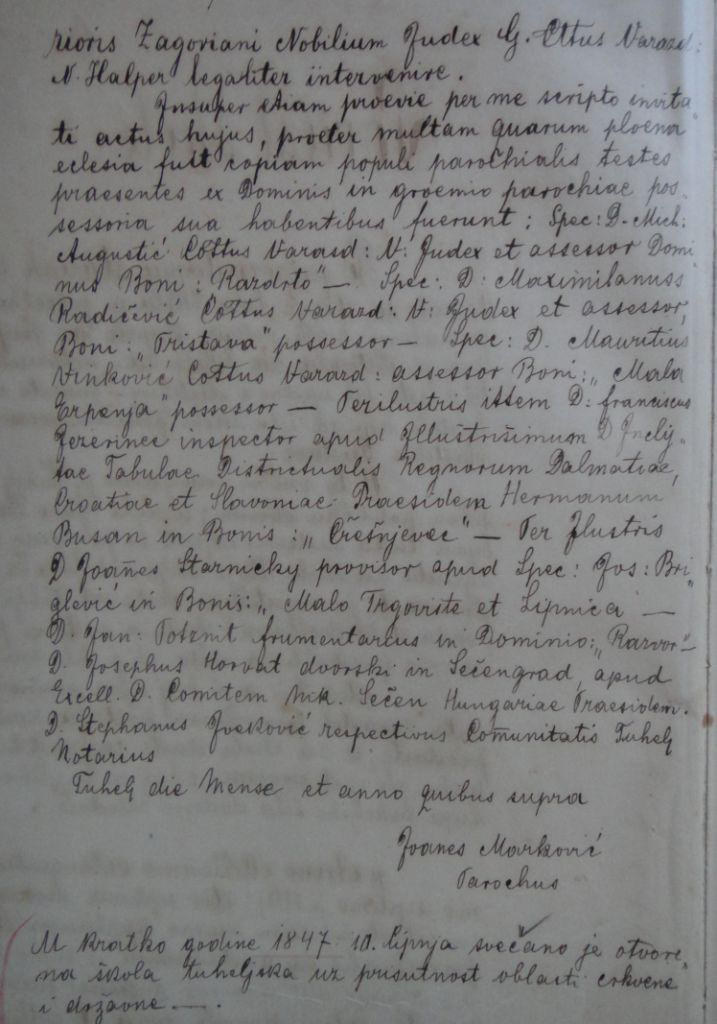 rioris Zagoriani Nobilium Judex G. Cttus Varasd:
N. Halper legaliter intervenire.
Insuper etiam proevie per me scripto invita„
ti actus hujus, proeter multam quarum ploena
eclesia fuit copiam populi parochialis testes
praesentes ex Dominis in groemio parochiae pos„
sessoria sua habentibus fuerunt; Spec: D. Mich:
Augustić Cottus Varasd: N: Judex et assessor Domi
nus Boni: Razdrto" — Spec: D: Maximilanuss
Radičević Cottus Varasd: N: Judex et assessor,
Boni: „Tristava" possessor — Spec: D. Mauritius
Vinković Cottus Varasd: assessor Boni: „Mala
Erpenja" possessor — Perilustris D: franciscus
Jezerinec inspector apud Illuštrišimum D Incly„
tae Tabulae Districtualis Regnorum Dalmatiae,
Croatiae et Slavoniae Praesidem Hermanum
Busan in Bonis: „Črešnjevec" — Per Ilustris
D Joañes Starnicky provisor apud Spec: Jos: Bri„
glević in Bonis: „Malo Trgovište et Lipnica —
D. Jan: frumentarius in Dominio: „Razvor" —
D. Josephus Horvat dvorski in Sečengrad, apud
Excell. D. Comitem Nik. Sečen Hungariae Praesidem.
D. Stephanus Iveković respectivus Comunitatis Tuhelj
Notarius
Tuhelj die Mense et anno quibus supra
Joanes Marković
Parochus
U kratko godine 1847 10. lipnja svečano je otvore„
na škola tuheljska uz prisutnost oblasti crkvene
i državne —.